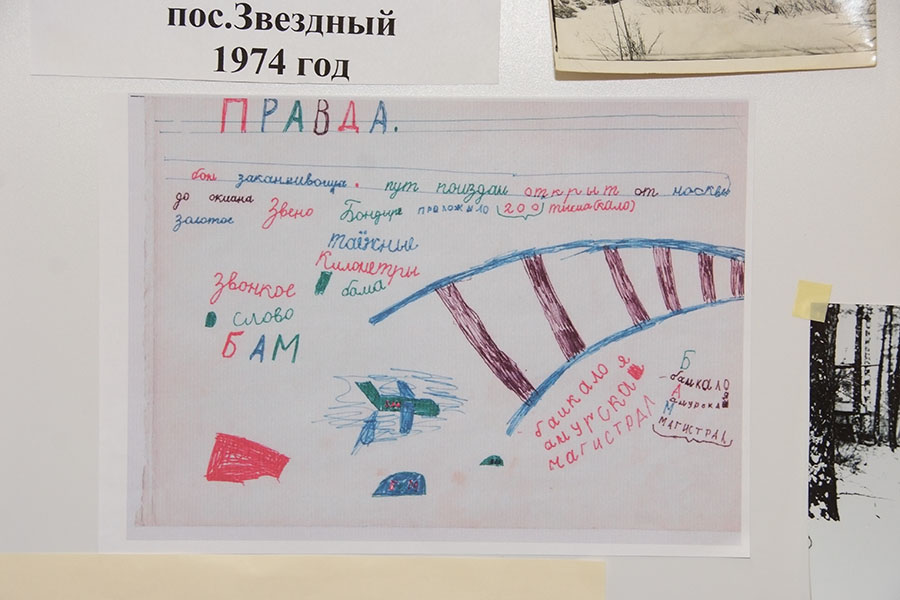 пос.Звездный
1974 год
ПРАВДА.
бам заканчивоща. пут поиздам открыт от москвы
до окиана Звено Бондаря проложило 200
Золотое
Таёжные
Километры
бама
Звонкое
слово
БАМ
баикало я
амурская
магистрал
Б
баикало я
А
амурская
М
магистрал